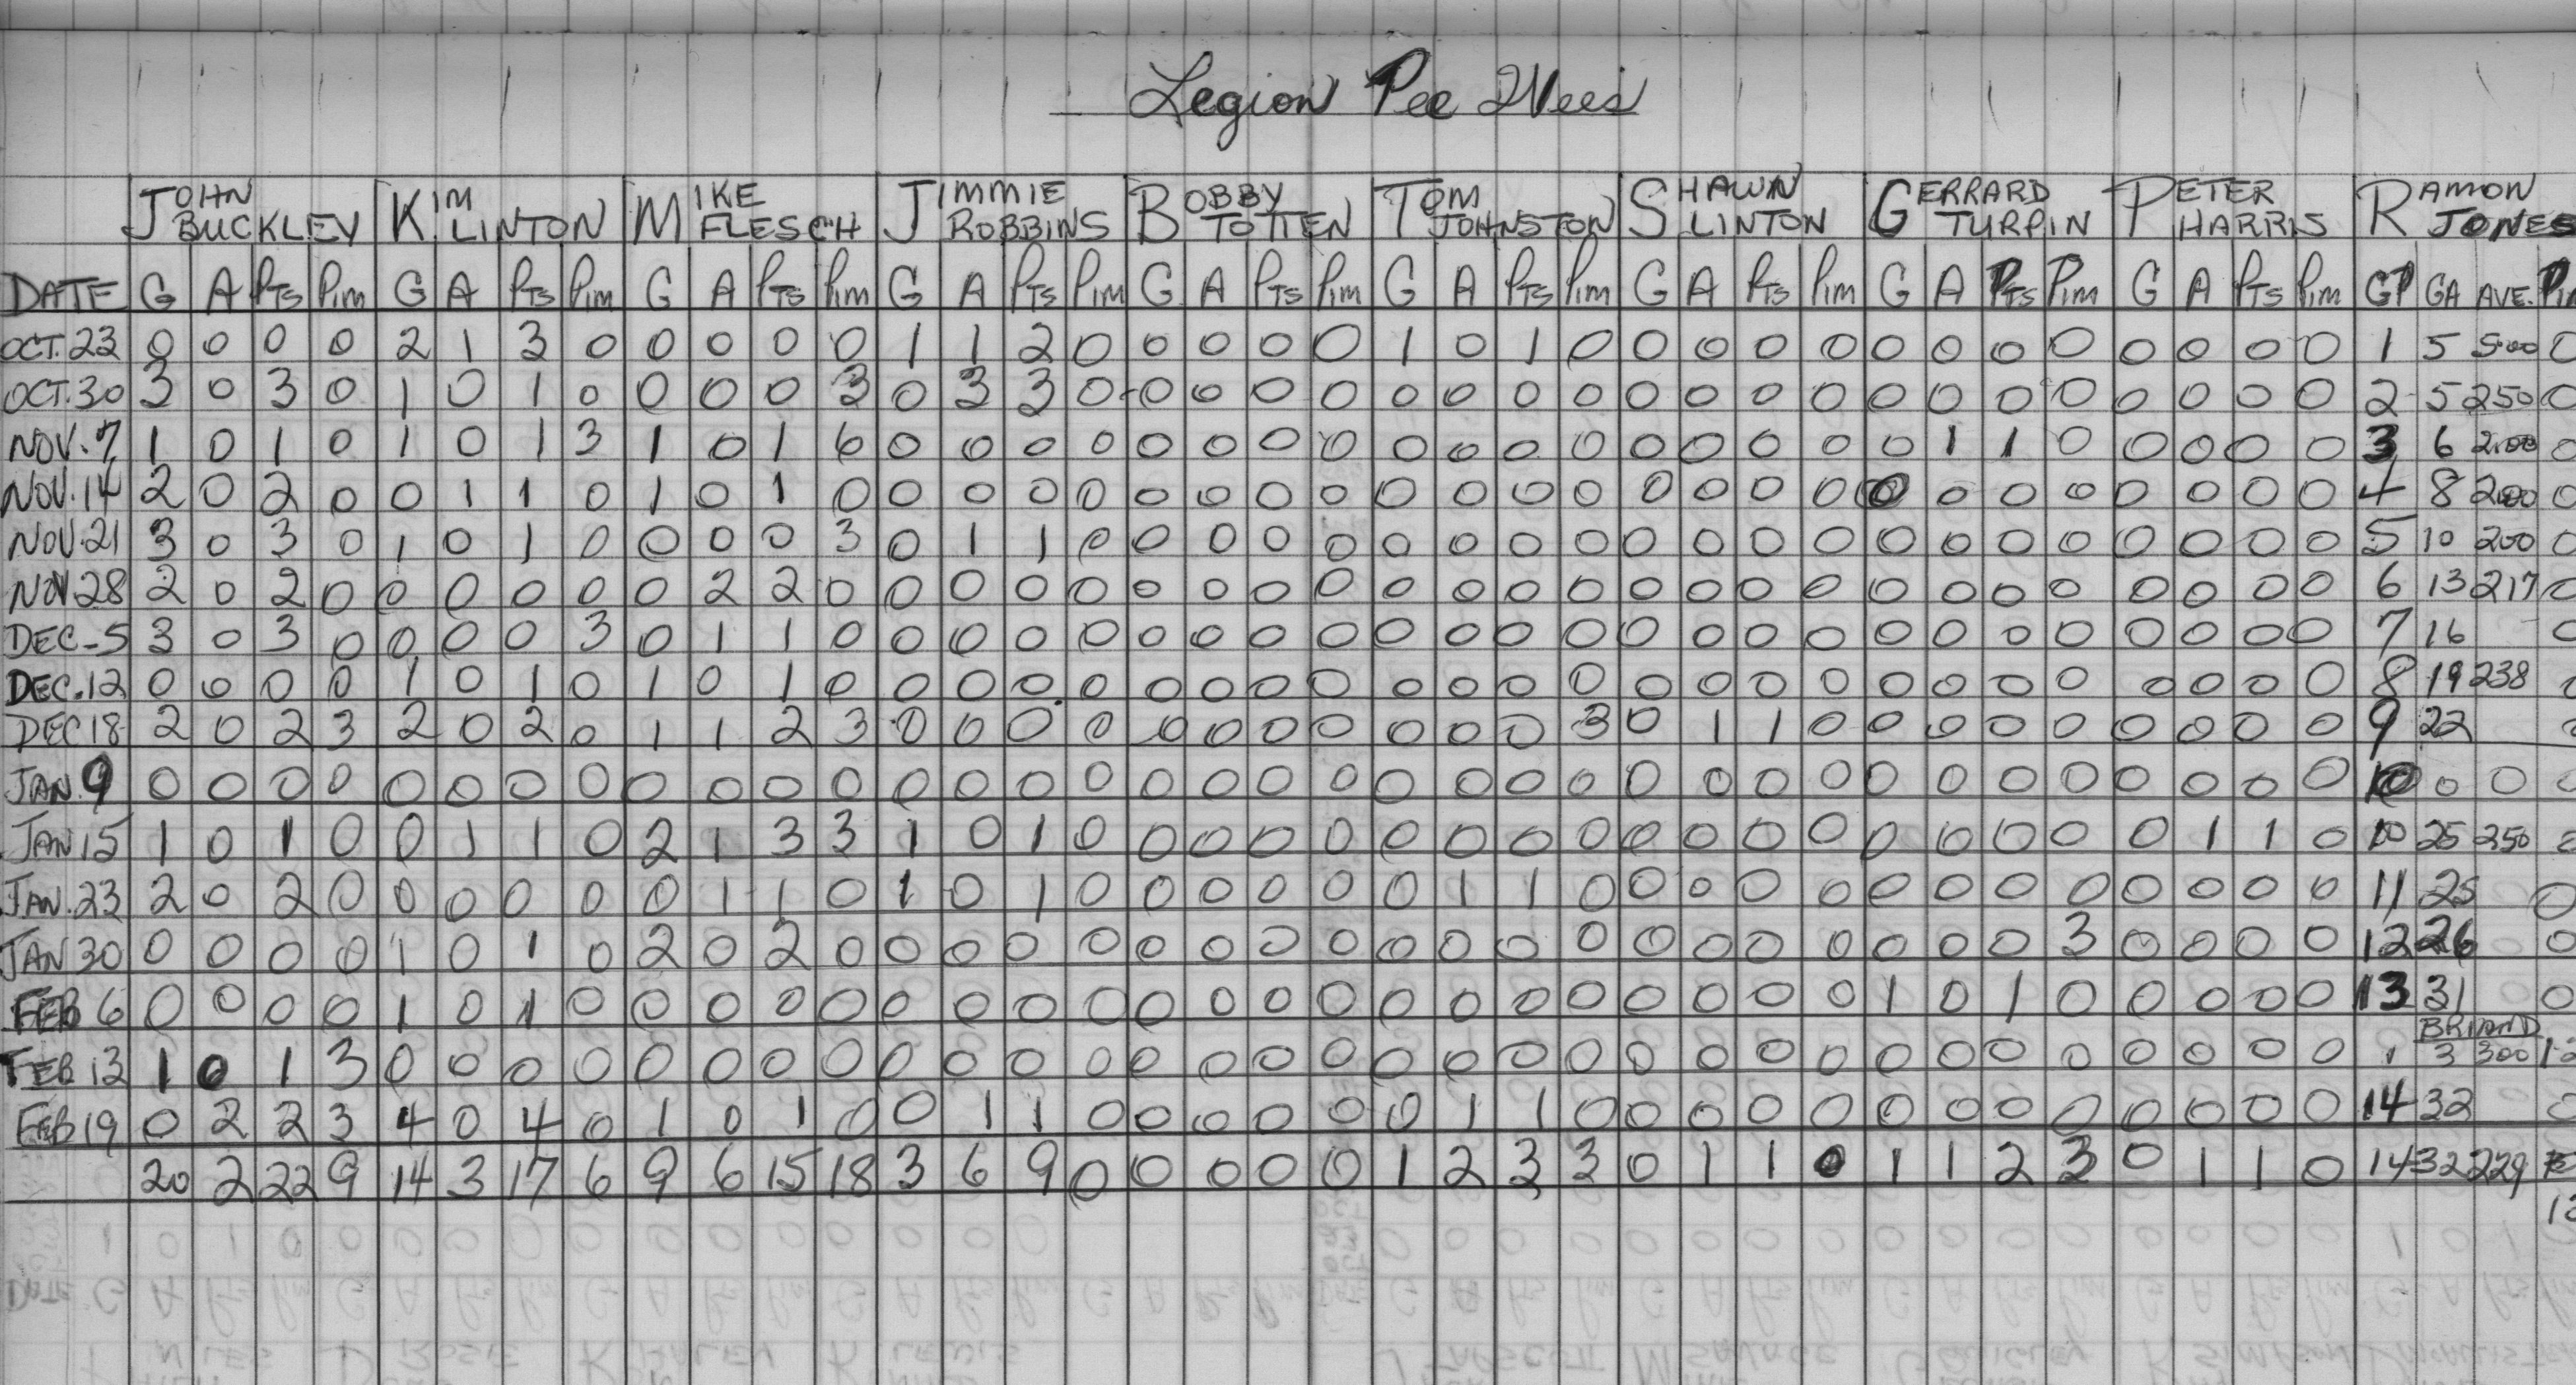 Legion Pee Wees
JOHN BUCKLEY KIM LINTON MIKE FLESCH JIMMIE ROBBINS BOBBY TOTTEN TOM JOHNSTON SHAWN LINTON GERRARD TURPIN PETER HARRIS RAMON JONES
DATE G A PTS Pim G A PTS Pim G A PTS Pim G A PTS Pim G A PTS Pim G A PTS Pim G A PTS Pim G A PTS Pim G A PTS Pim GP GA AVE.
OCT. 23 0 0 0 0 2 1 3 0 0 0 0 0 1 1 2 0 0 0 0 0 1 0 1 0 0 0 0 0 0 0 0 0 0 0 0 0 1 5 500 0
OCT. 30 3 0 3 0 1 0 1 0 0 0 0 3 0 3 3 0 0 0 0 0 0 0 0 0 0 0 0 0 0 0 0 0 0 0 0 0 2 5 250 0
NOV. 7 1 0 1 0 1 0 1 3 1 0 1 6 0 0 0 0 0 0 0 0 0 0 0 0 0 0 0 0 0 1 1 0 0 0 0 0 3 6 2.00 0
NOV. 14 2 0 2 0 0 1 1 0 1 0 1 0 0 0 0 0 0 0 0 0 0 0 0 0 0 0 0 0 0 0 0 0 0 0 0 0 4 8 200 0
NOV. 21 3 0 3 0 1 0 1 0 0 0 0 3 0 1 1 0 0 0 0 0 0 0 0 0 0 0 0 0 0 0 0 0 0 0 0 0 5 10 200 0
NOV 28 2 0 2 0 0 0 0 0 0 2 2 0 0 0 0 0 0 0 0 0 0 0 0 0 0 0 0 0 0 0 0 0 0 0 0 0 6 13 217 0
DEC-5 3 0 3 0 0 0 0 3 0 1 1 0 0 0 0 0 0 0 0 0 0 0 0 0 0 0 0 0 0 0 0 0 0 0 0 0 7 16 0
DEC. 12 0 0 0 0 1 0 1 0 1 0 1 0 0 0 0 0 0 0 0 0 0 0 0 0 0 0 0 0 0 0 0 0 0 0 0 0 8 19 238 0
DEC 18 2 0 2 3 2 0 2 0 1 1 2 3 0 0 0 0 0 0 0 0 0 0 0 3 0 1 1 0 0 0 0 0 0 0 0 0 9 22
JAN. 9 0 0 0 0 0 0 0 0 0 0 0 0 0 0 0 0 0 0 0 0 0 0 0 0 0 0 0 0 0 0 0 0 0 0 0 0 0 0 0
JAN 15 1 0 1 0 0 1 1 0 2 1 3 3 1 0 1 0 0 0 0 0 0 0 0 0 0 0 0 0 0 0 0 0 0 1 1 0 10 25 250
JAN. 23 2 0 2 0 0 0 0 0 0 1 1 0 1 0 1 0 0 0 0 0 0 1 1 0 0 0 0 0 0 0 0 0 0 0 0 0 11 25 0
JAN 30 0 0 0 0 1 0 1 0 2 0 2 0 0 0 0 0 0 0 0 0 0 0 0 0 0 0 0 0 0 0 0 3 0 0 0 0 12 26 0
FEB 6 0 0 0 0 1 0 1 0 0 0 0 0 0 0 0 0 0 0 0 0 0 0 0 0 0 0 0 0 1 0 1 0 0 0 0 0 13 31 0
BRIAND
FEB 13 1 0 1 3 0 0 0 0 0 0 0 0 0 0 0 0 0 0 0 0 0 0 0 0 0 0 0 0 0 0 0 0 0 0 0 0 1 3 300
FEB 19 0 2 2 3 4 0 4 0 1 0 1 0 0 1 1 0 0 0 0 0 0 1 1 0 0 0 0 0 0 0 0 0 0 0 0 0 14 32
20 2 22 9 14 3 17 6 9 6 15 18 3 6 9 0 0 0 0 0 1 2 3 3 0 1 1 0 1 1 2 3 0 1 1 0 14 32 229